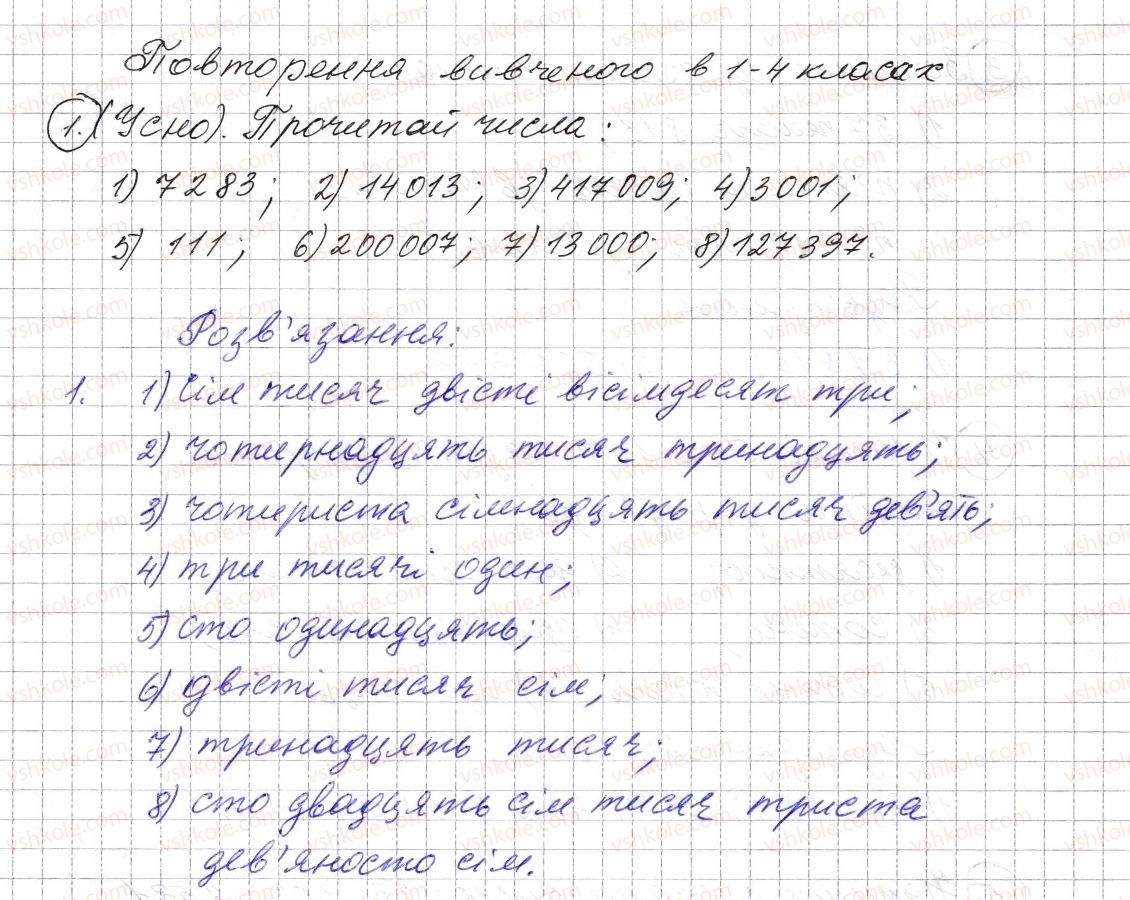 Повторення вивченого в 1-4 класах
1. (Усно). Прочитай числа:
1) 7283; 2) 14013; 3) 417009; 4) 3001;
5) 111; 6) 200007; 7) 13000; 8) 127397.
Розв'язання:
1. 1) Сім тисяч двісті вісімдесят три;
2) чотирнадцять тисяч тринадцять;
3) чотириста сімнадцять тисяч дев'ять;
4) три тисячі один;
5) сто одинадцять;
6) двісті тисяч сім;
7) тринадцять тисяч;
8) сто двадцять сім тисяч триста
дев'яносто сім.
vshkole.com